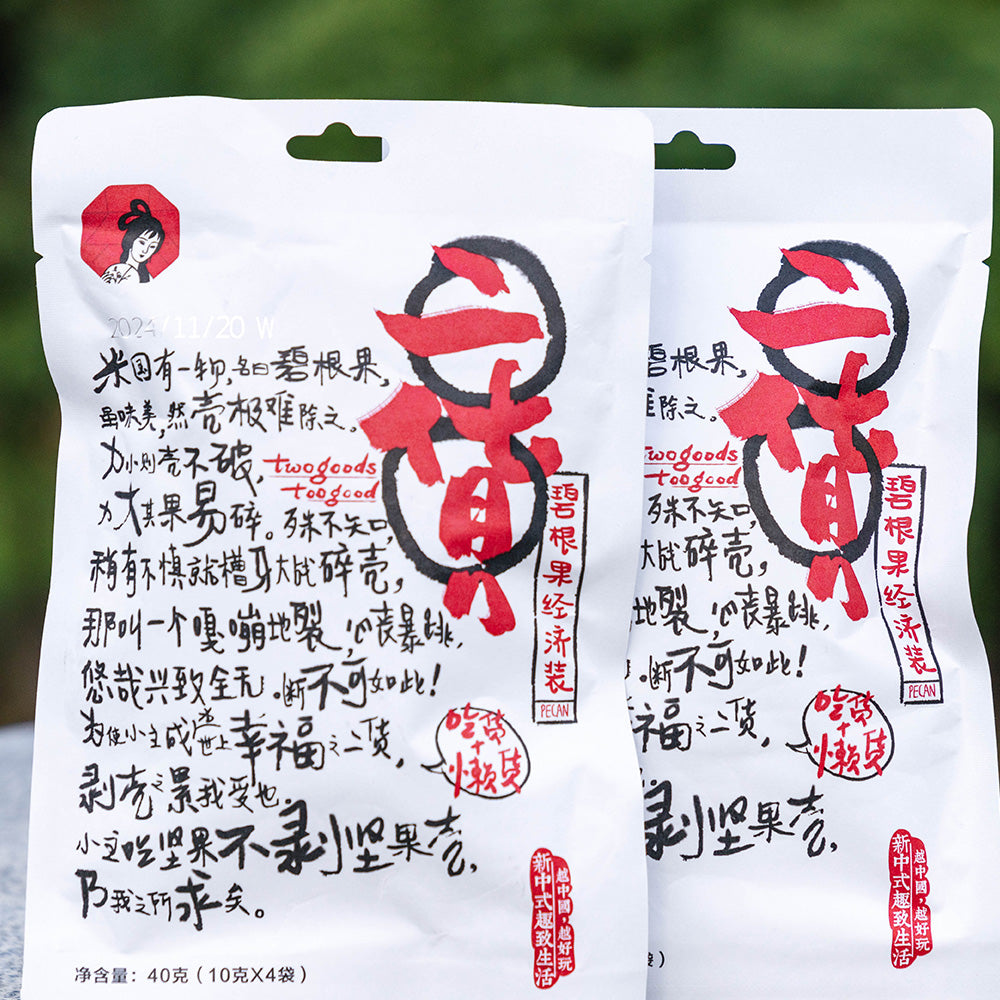 2024/11/20 W
米国有一物,名曰碧根果,
虽味美,然壳极难除之。
力小则壳不破,
力大其果易碎。殊不知,
稍有不慎就槽牙大战碎壳,
那叫一个嘎嘣地裂,心丧暴跳,
悠哉兴致全无。断不可如此!
为使小主成为世上幸福之二货,
剥壳之累我受也,
小主吃坚果不剥坚果壳,
乃我之所求矣。
净含量:40克(10克X4袋)
二货
twogoods
toogood
碧根果经济装
PECAN
吃货
+
懒货
越中國,越好玩
新中式趣致生活
碧根果,
难除之。
twogoods
toogood
殊不知,
大战碎壳,
地裂,心丧暴跳,
。断不可如此!
幸福之二货,
剥坚果壳,
)
二货
碧根果经济装
PECAN
吃货
+
懒货
越中國,越好玩
新中式趣致生活